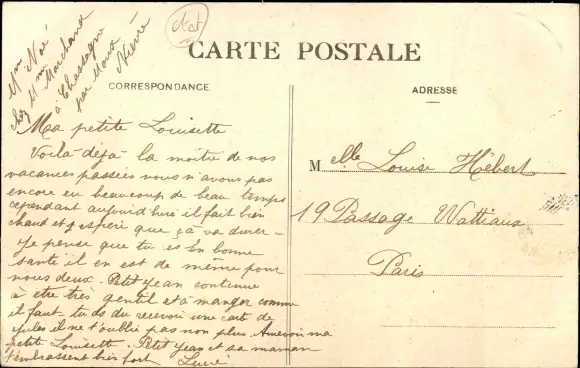 Etat
Mme Noé
chez Mme Marchand
à Chassagne
par Moux
Nièvre
CARTE POSTALE
CORRESPONDANCE
Ma petite Louisette
Voilà déjà la moitié de nos
vacances passées nous n'avons pas
encore eu beaucoup de beau temps
cependant aujourd'hui il fait bien
chaud et j'espère que ça va durer-
Je pense que tu es en bonne
santé il en est de même pour
nous deux. Petit Jean continue
à être très gentil et à manger comme
il faut. tu as du recevoir une carte de
il ne t'oublie pas non plus. Au revoir ma
petite Louisette. Petit Jean et sa maman
t'embrassent bien fort
ADRESSE
Melle Louise Hébert
19 Passage Wattiaux
Paris